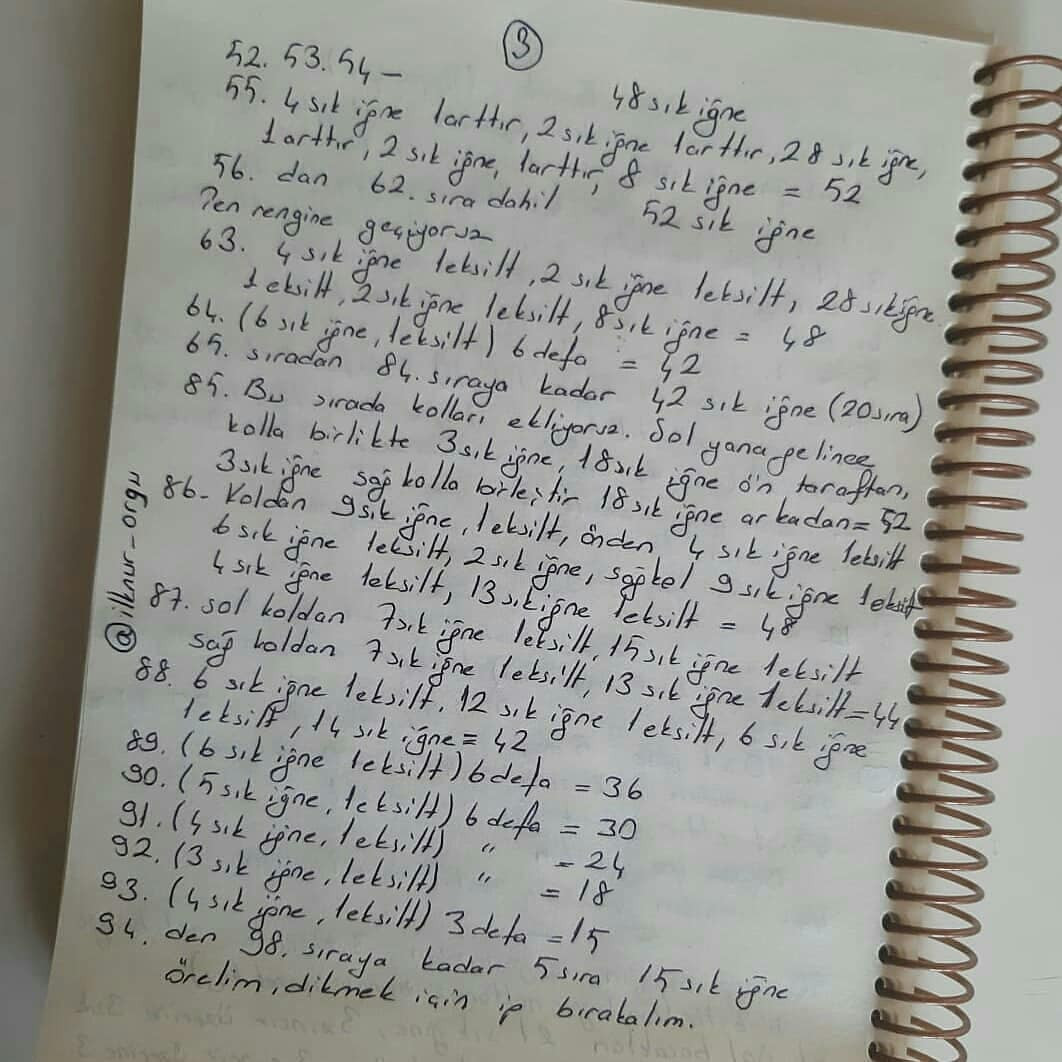 3
52. 53. 54 - 48 sık iğne
55. 4 sık iğne 1arttır, 2 sık iğne 1arttır, 28 sık iğne,
1arttır, 2 sık iğne, 1arttır, 8 sık iğne = 52
56. dan 62. sıra dahil 52 sık iğne
Ten rengine geçiyorsz
63. 4 sık iğne 1eksilt, 2 sık iğne 1eksilt, 28 sık iğne
1eksilt, 2 sık iğne 1eksilt, 8 sık iğne = 48
64. (6 sık iğne, 1eksilt) 6 defa = 42
65. sıradan 84. sıraya kadar 42 sık iğne (20 sıra)
85. Bu sırada kolları ekliyorsz. Sol yana gelince
kolla birlikte 3 sık iğne, 18 sık iğne ön taraftan,
3 sık iğne sağ kolla birleştir 18 sık iğne arkadan = 52
86- Koldan 9 sık iğne, 1eksilt, önden 4 sık iğne 1eksilt
6 sık iğne 1eksilt, 2 sık iğne, sağ kol 9 sık iğne 1eksilt
4 sık iğne 1eksilt, 13 sık iğne 1eksilt = 48
87. sol koldan 7 sık iğne 1eksilt, 15 sık iğne 1eksilt
sağ koldan 7 sık iğne 1eksilt, 13 sık iğne 1eksilt = 44
88. 6 sık iğne 1eksilt, 12 sık iğne 1eksilt, 6 sık iğne
1eksilt, 14 sık iğne = 42
89. (6 sık iğne 1eksilt) 6 defa = 36
90. (5 sık iğne, 1eksilt) 6 defa = 30
91. (4 sık iğne, 1eksilt) " = 24
92. (3 sık iğne, 1eksilt) " = 18
93. (4 sık iğne, 1eksilt) 3 defa = 15
94. den 98. sıraya kadar 5 sıra 15 sık iğne
örelim, dikmek için ip bırakalım.
@ilknur_orgu